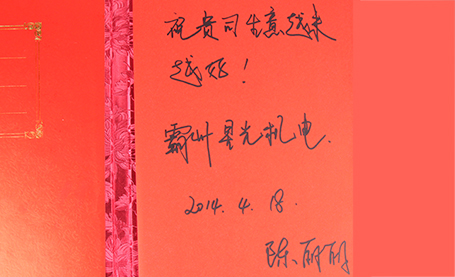 祝贵司生意越来
越好！
霸州星光机电.
2014.4.18.
陈丽丽